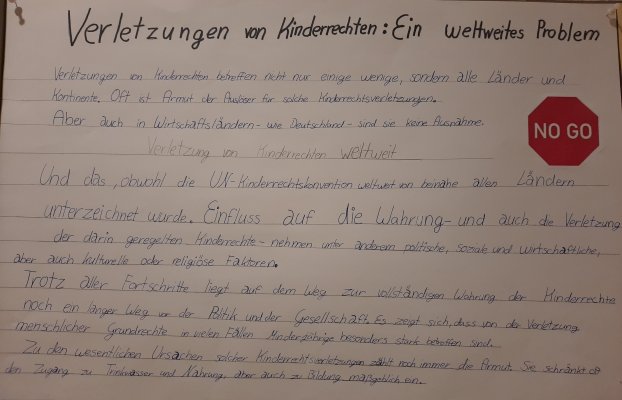 Verletzungen von Kinderrechten: Ein weltweites Problem
Verletzungen von Kinderrechten betreffen nicht nur einige wenige, sondern alle Länder und
Kontinente. Oft ist Armut der Auslöser für solche Kinderrechtsverletzungen.
Aber auch in Wirtschaftsländern - wie Deutschland - sind sie keine Ausnahme.
NO GO
Verletzung von Kinderrechten weltweit
Und das, obwohl die UN-Kinderrechtskonvention weltweit von beinahe allen Ländern
unterzeichnet wurde. Einfluss auf die Wahrung - und auch die Verletzung
der darin geregelten Kinderrechte - nehmen unter anderem politische, soziale und wirtschaftliche,
aber auch kulturelle oder religiöse Faktoren.
Trotz aller Fortschritte liegt auf dem Weg zur vollständigen Wahrung der Kinderrechte
noch ein langer Weg vor der Politik und der Gesellschaft. Es zeigt sich, dass von der Verletzung
menschlicher Grundrechte in vielen Fällen Minderjährige besonders stark betroffen sind.
Zu den wesentlichen Ursachen solcher Kinderrechtsverletzungen zählt noch immer die Armut. Sie schränkt oft
den Zugang zu Trinkwasser und Nahrung, aber auch zu Bildung maßgeblich ein.